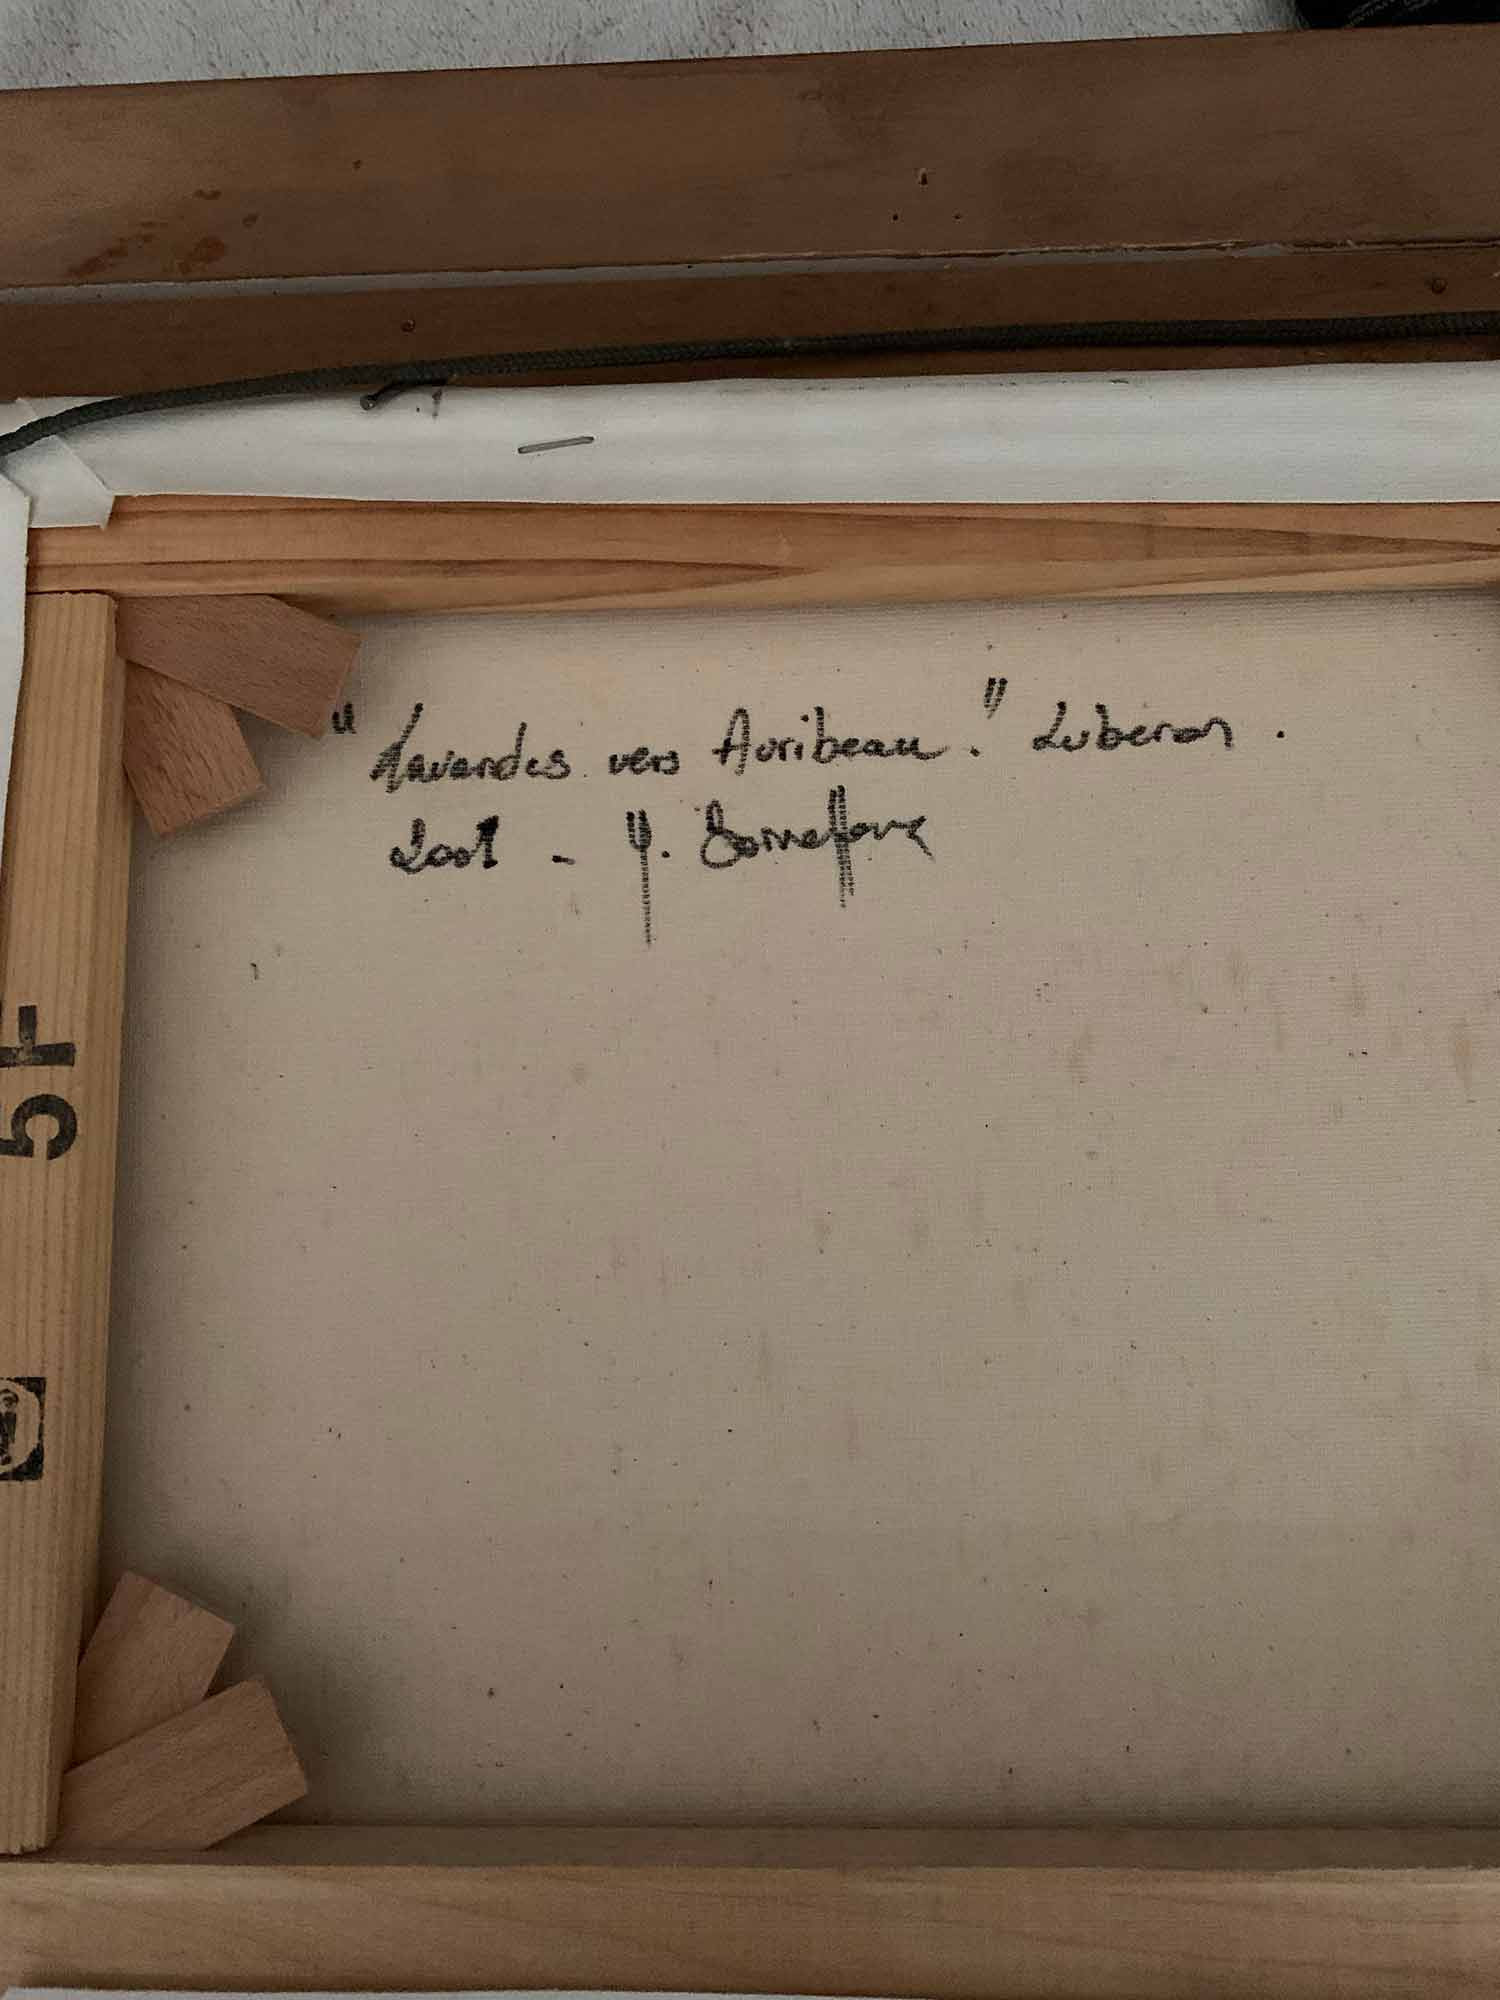 "Lavandes vers Auribeau." Luberon.
2001 - Y. Bonnefoux
5F